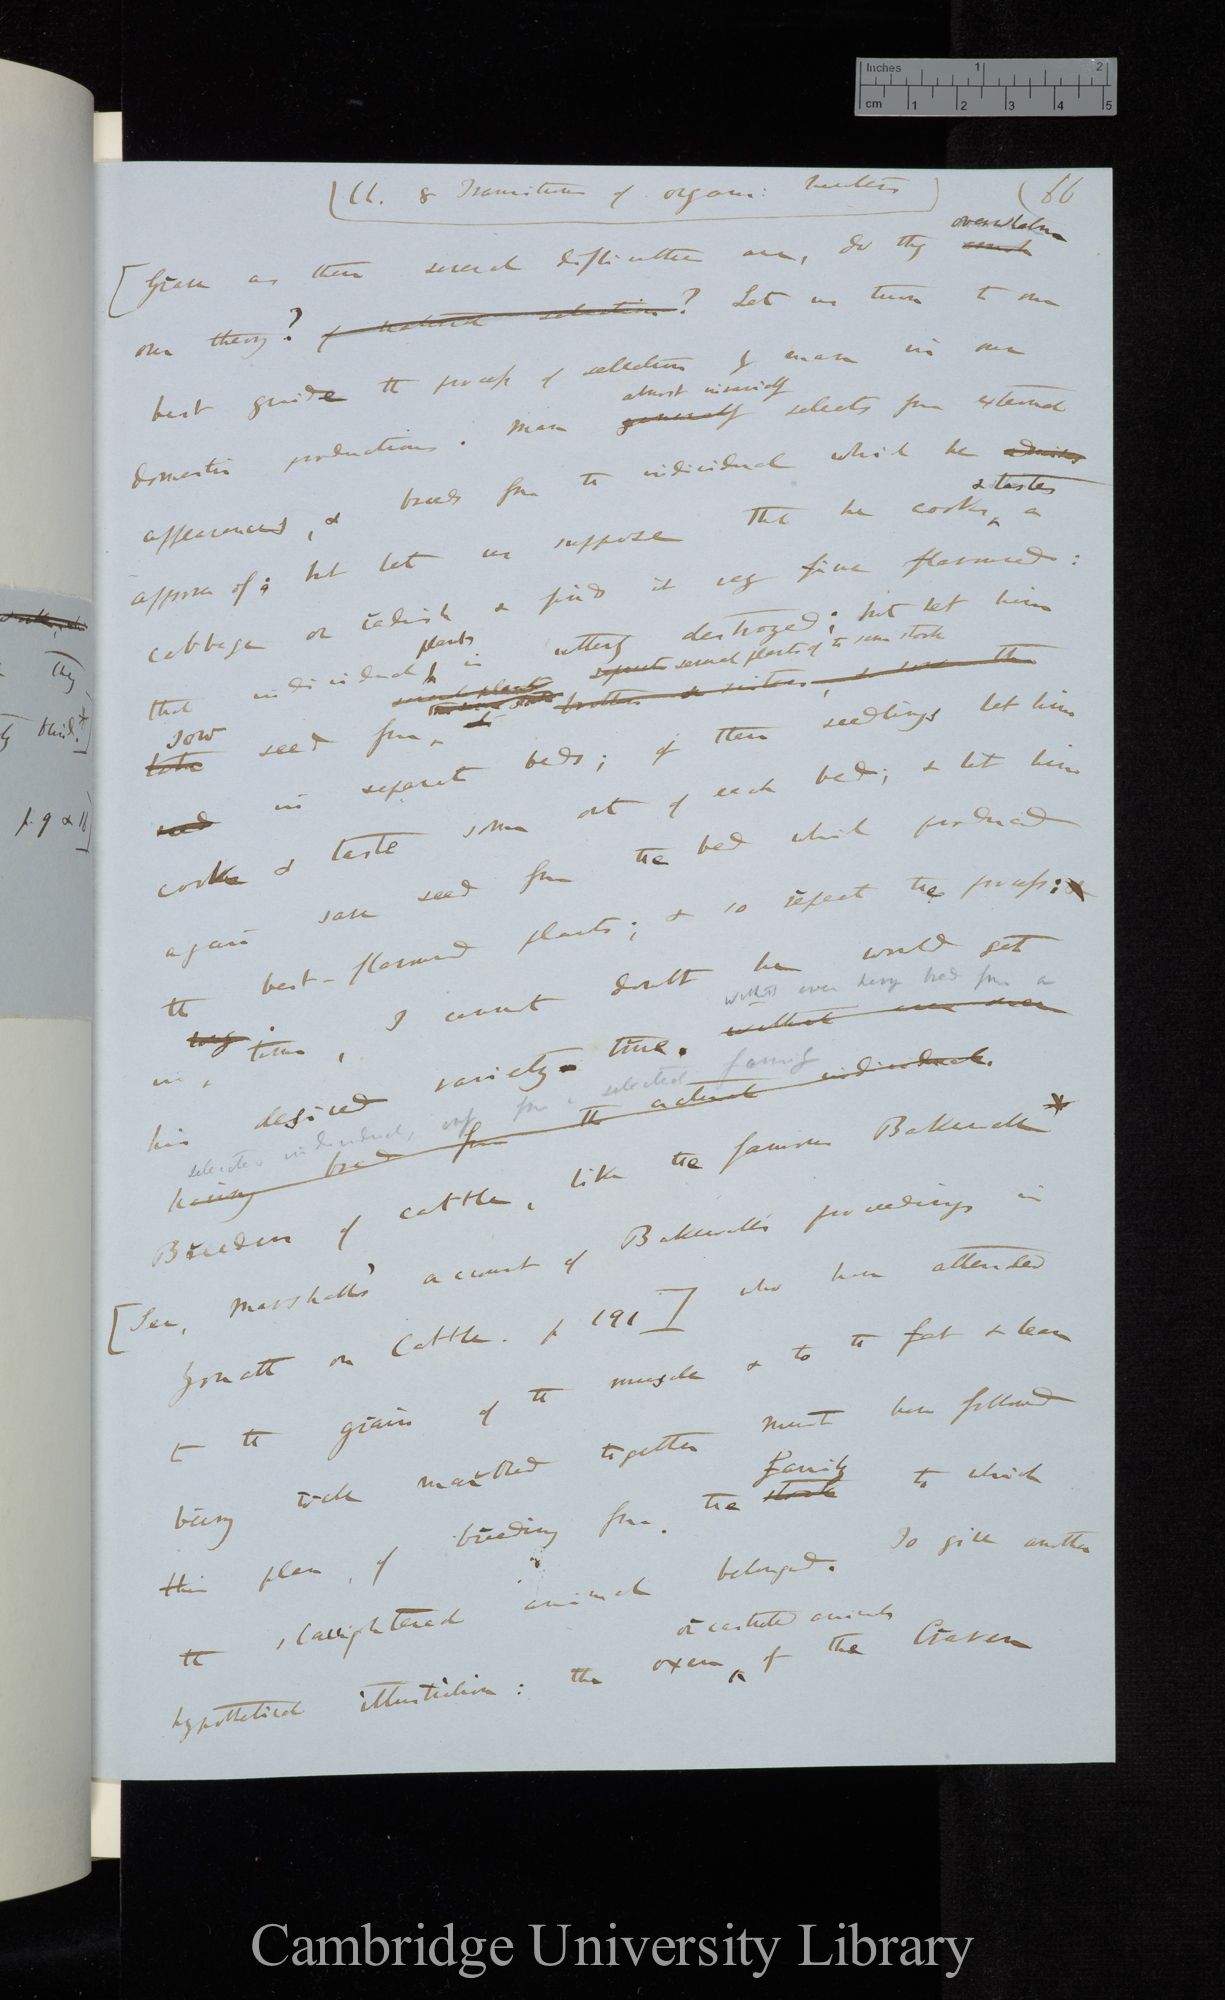 Inches 1 2
cm 1 2 3 4 5
(Ch. 8 Transitions of organic beings) (66
overwhelm
[Grave as these several difficulties are, do they crush
our theory? of natural selection? Let us turn to our
best guide the process of selection by man in our
almost invariably
domestic productions. Man generally selects from external
appearances, & breeds from the individual which he admires
& tastes
approves of; but let us suppose that he cooks a
cabbage or radish & finds it very fine flavoured:
that individual plant is utterly destroyed; but let him
separate several plants of the same stock
sow
take seed from brothers & sisters, & sow the
seed in separate beds; of these seedlings let him
cook & taste some out of each bed; & let him
again save seed from the bed which produced
the best-flavoured plants; & so repeat the process: &
in, long time, I cannot doubt he would get
without ever having bred from a
his desired variety true. without ever
selected individual, only from a selected family
having bred from the actual individual.
Breeders of cattle, like the famous Bakewell*
[See, Marshall's account of Bakewell's proceedings in
Youatt on Cattle. p 191] who have attended
to the grain of the muscle & to the fat & lean
being well marbled together must have followed
family
this plan, of breeding from the stock to which
the slaughtered animal belonged. To give another
or castrated animals
hypothetical illustration: the oxen of the Craven
they
blind.*]
p. 9 &
Cambridge University Library